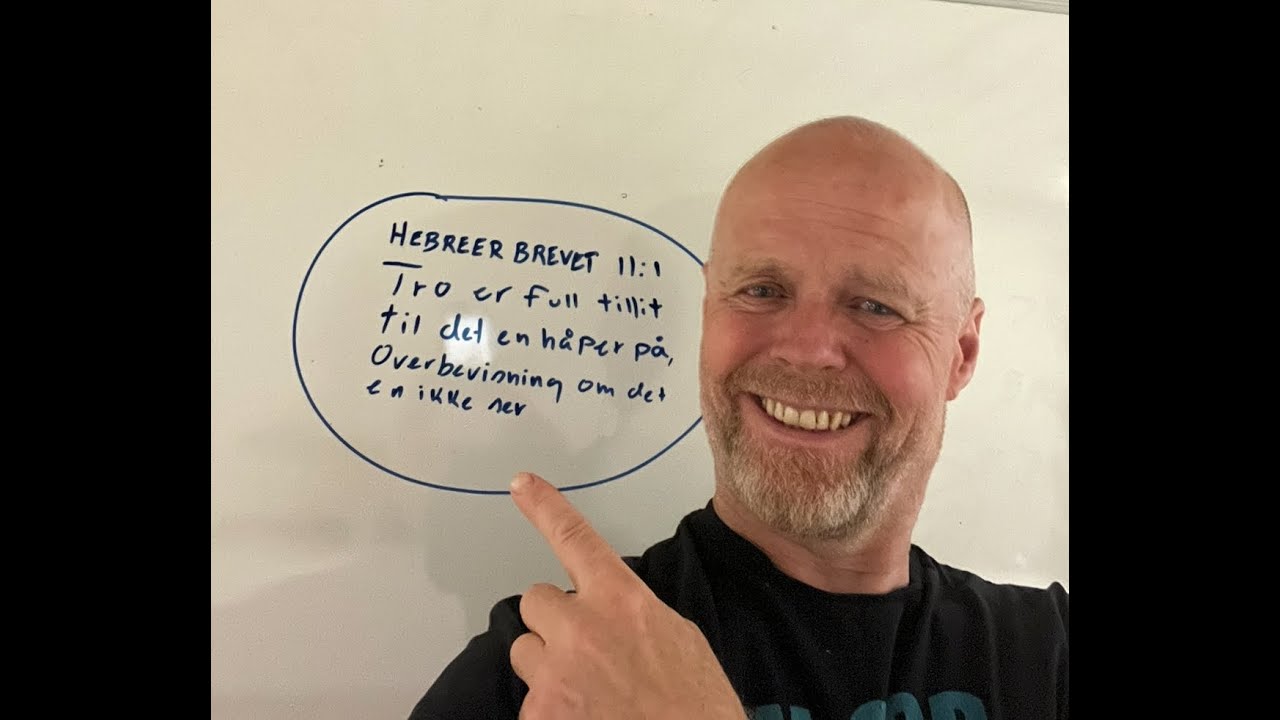 HEBREER BREVET 11:1
Tro er full tillit
til det en håper på,
Overbevisning om det
en ikke ser